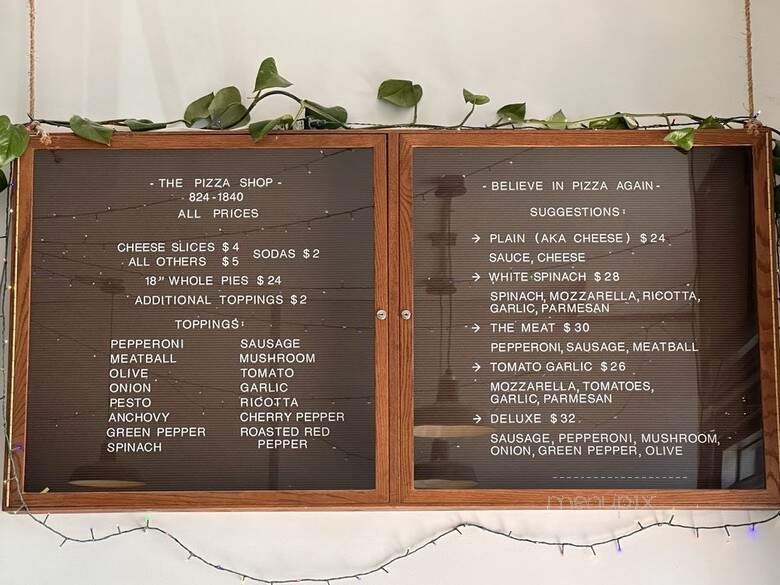 - THE PIZZA SHOP -
824-1840
ALL PRICES
CHEESE SLICES $4
ALL OTHERS $5
SODAS $2
18" WHOLE PIES $24
ADDITIONAL TOPPINGS $2
TOPPINGS:
PEPPERONI
MEATBALL
OLIVE
ONION
PESTO
ANCHOVY
GREEN PEPPER
SPINACH
SAUSAGE
MUSHROOM
TOMATO
GARLIC
RICOTTA
CHERRY PEPPER
ROASTED RED
PEPPER
- BELIEVE IN PIZZA AGAIN -
SUGGESTIONS:
→ PLAIN (AKA CHEESE) $24
SAUCE, CHEESE
→ WHITE SPINACH $28
SPINACH, MOZZARELLA, RICOTTA,
GARLIC, PARMESAN
→ THE MEAT $30
PEPPERONI, SAUSAGE, MEATBALL
→ TOMATO GARLIC $26
MOZZARELLA, TOMATOES,
GARLIC, PARMESAN
→ DELUXE $32
SAUSAGE, PEPPERONI, MUSHROOM,
ONION, GREEN PEPPER, OLIVE
-------------------
menupix